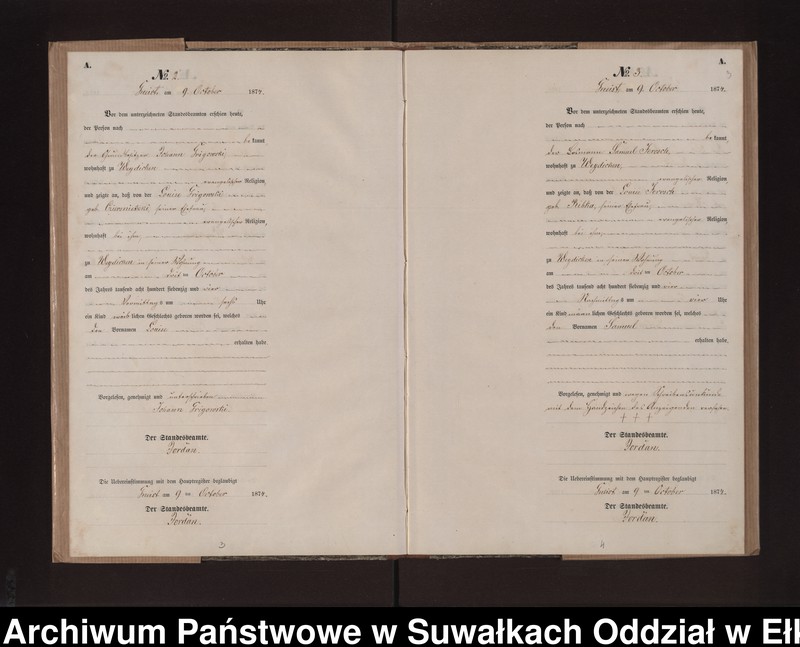 A.
№ 2
am 9 October 1874.
Vor dem unterzeichneten Standesbeamten erschien heute,
der Person nach
bekannt
der Johann Grigowski,
wohnhaft zu
evangelischer Religion,
und zeigte an, daß von der Louise Grigowski
geb. seiner Ehefrau,
evangelischer Religion,
wohnhaft bei ihm
zu in seiner Wohnung
am October
des Jahres tausend acht hundert siebenzig und vier
Vormittags um Uhr
ein Kind weiblichen Geschlechts geboren worden sei, welches
den Vornamen Louise
erhalten habe.
Vorgelesen, genehmigt und unterschrieben
Johann Grigowski
Der Standesbeamte.
Jordan.
Die Uebereinstimmung mit dem Hauptregister beglaubigt
am 9 ten October 1874.
Der Standesbeamte.
Jordan.
3
A.
№ 3
3
am 9 October 1874.
Vor dem unterzeichneten Standesbeamten erschien heute,
der Person nach
bekannt
der Losmann Samuel
wohnhaft zu
evangelischer Religion,
und zeigte an, daß von der Louise
geb. seiner Ehefrau,
evangelischer Religion
wohnhaft bei ihm
zu in seiner Wohnung
am October
des Jahres tausend acht hundert siebenzig und vier
Nachmittags um vier Uhr
ein Kind männlichen Geschlechts geboren worden sei, welches
den Vornamen Samuel
erhalten habe.
Vorgelesen, genehmigt und wegen Schreibensunkunde
mit dem Handzeichen des Anzeigenden versehen
† † †
Der Standesbeamte.
Jordan.
Die Uebereinstimmung mit dem Hauptregister beglaubigt
am 9 ten October 1874.
Der Standesbeamte.
Jordan.
4
Archiwum Państwowe w Suwałkach Oddział w Ełk